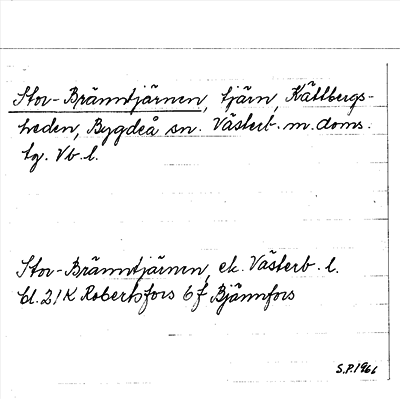 Stor-Bränntjärnen, tjärn, Kättbergs-
heden, Bygdeå sn. Västerb. m. doms.
tg. Vb. l.
Stor-Bränntjärnen, ek. Västerb. l.
bl. 21K Robertsfors 6f Bjännfors
S.P. 1966